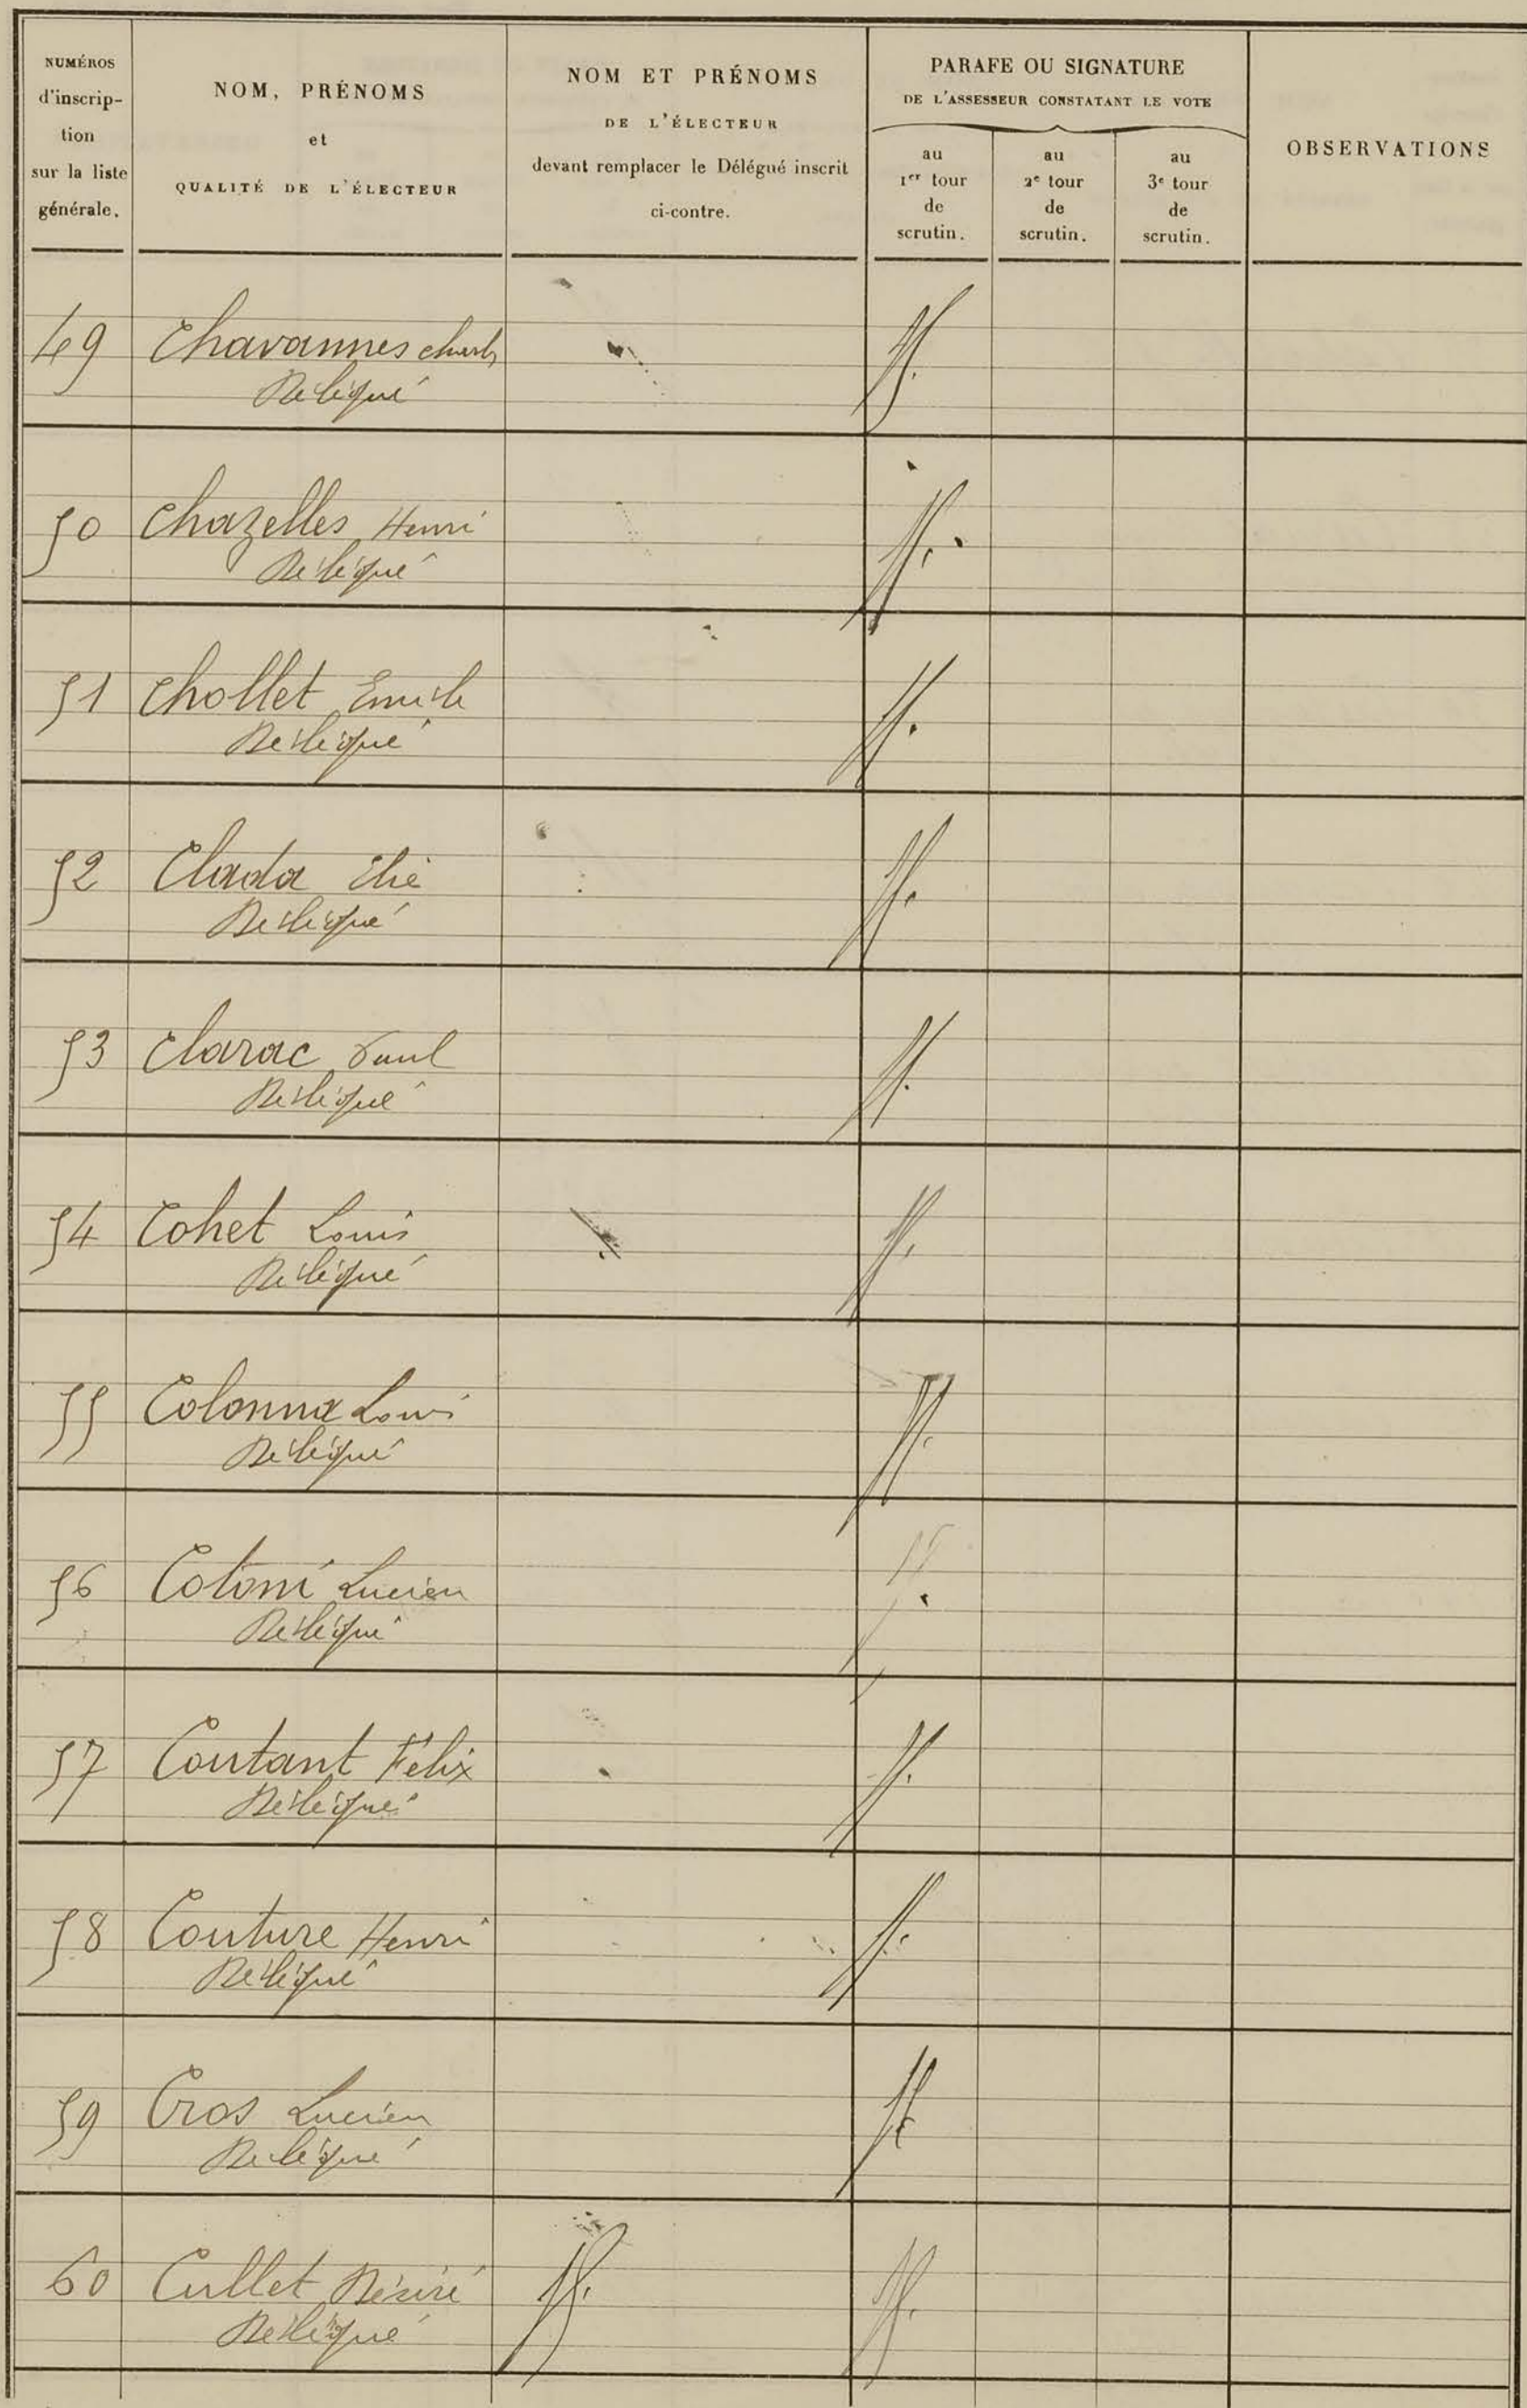 NUMÉROS
d'inscrip-
tion
sur la liste
générale.
NOM, PRÉNOMS
et
QUALITÉ DE L'ÉLECTEUR
NOM ET PRÉNOMS
DE L'ÉLECTEUR
devant remplacer le Délégué inscrit
ci-contre.
PARAFE OU SIGNATURE
DE L'ASSESSEUR CONSTATANT LE VOTE
au
1er tour
de
scrutin.
au
2e tour
de
scrutin.
au
3e tour
de
scrutin.
OBSERVATIONS
49 Chavannes Charles
Délégué
50 Chazelles Henri
Délégué
51 Chollet Emile
Délégué
52 Clada Elie
Délégué
53 Clarac Paul
Délégué
54 Cohet Louis
Délégué
55 Colonna Louis
Délégué
56 Lucien
Délégué
57 Coutant Félix
Délégué
58 Couture Henri
Délégué
59 Cros Lucien
Délégué
60 Cullet Désiré
Délégué